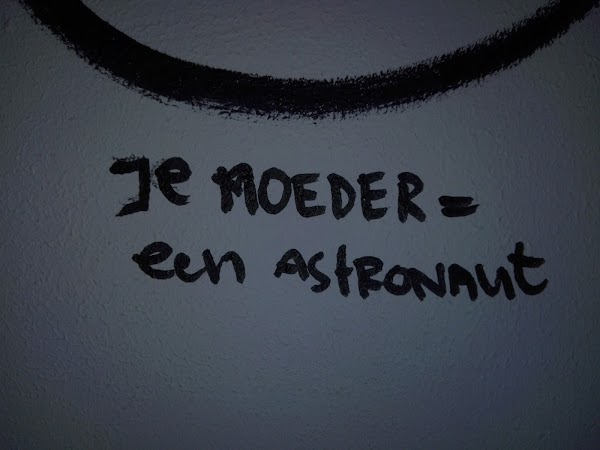 Je MOEDER =
een AStRONAUt